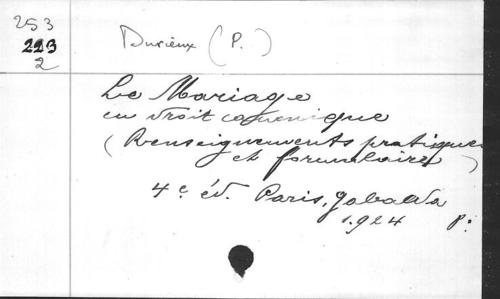 253
223
2
Durieux (P.)
Le Mariage
en droit canonique
(Renseignements pratiques
et formulaires)
4e éd. Paris, Gabalda
1924 p: